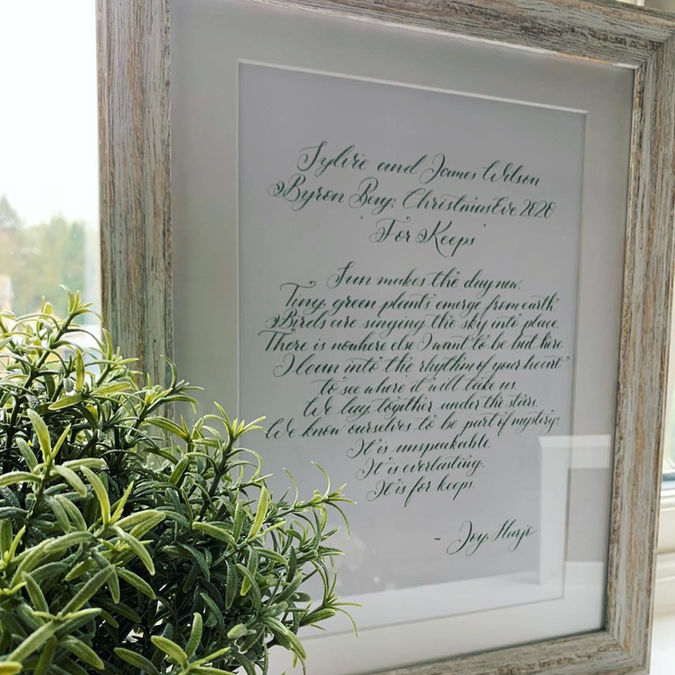 Sylvie and James Wilson
Byron Bay, Christmas Eve 2020
'For Keeps'
Sun makes the day new.
Tiny green plants emerge from earth.
Birds are singing the sky into place.
There is nowhere else I want to be but here.
I lean into the rhythm of your heart
to see where it will take us.
We lay together under the stars.
We know ourselves to be part of mystery.
It is unspeakable.
It is everlasting.
It is for keeps.
- Joy Harjo